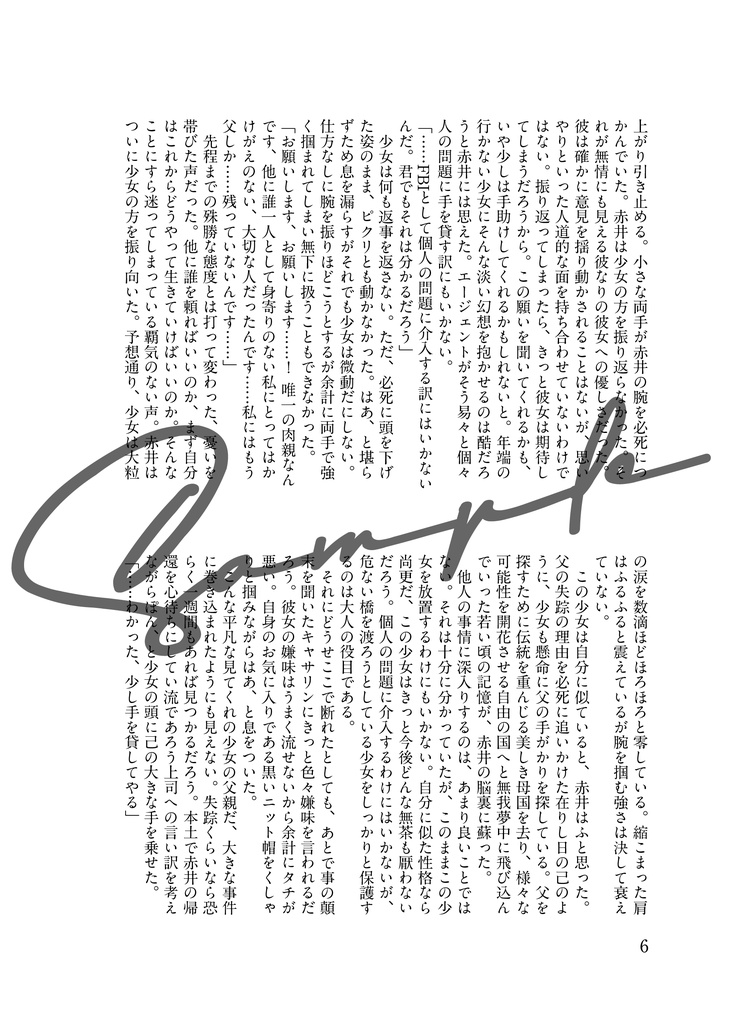 上がり引き止める。小さな両手が赤井の腕を必死につ
かんでいた。赤井は少女の方を振り返らなかった。そ
れが無情にも見える彼なりの彼女への優しさだった。
彼は確かに意見を揺り動かされることはないが、思い
やりといった人道的な面を持ち合わせていないわけで
はない。振り返ってしまったら、きっと彼女は期待し
てしまうだろうから。この願いを聞いてくれるかも、
いや少しは手助けしてくれるかもしれないと。年端の
行かない少女にそんな淡い幻想を抱かせるのは酷だろ
うと赤井には思えた。エージェントがそう易々と個々
人の問題に手を貸す訳にもいかない。
「……FBIとして個人の問題に介入する訳にはいかない
んだ。君でもそれは分かるだろう」
少女は何も返事を返さない。ただ、必死に頭を下げ
た姿のまま、ピクリとも動かなかった。はあ、と堪ら
ずため息を漏らすがそれでも少女は微動だにしない。
仕方なしに腕を振りほどこうとするが余計に両手で強
く掴まれてしまい無下に扱うこともできなかった。
「お願いします、お願いします……！　唯一の肉親なん
です、他に誰一人として身寄りのない私にとってはか
けがえのない、大切な人だったんです……私にはもう
父しか……残っていないんです……」
先程までの殊勝な態度とは打って変わった、憂いを
帯びた声だった。他に誰を頼ればいいのか、まず自分
はこれからどうやって生きていけばいいのか。そんな
ことにすら迷ってしまっている覇気のない声。赤井は
ついに少女の方を振り向いた。予想通り、少女は大粒
の涙を数滴ほどほろほろと零している。縮こまった肩
はふるふると震えているが腕を掴む強さは決して衰え
ていない。
この少女は自分に似ていると、赤井はふと思った。
父の失踪の理由を必死に追いかけた在りし日の己のよ
うに、少女も懸命に父の手がかりを探している。父を
探すために伝統を重んじる美しき母国を去り、様々な
可能性を開花させる自由の国へと無我夢中に飛び込ん
でいった若い頃の記憶が、赤井の脳裏に蘇った。
他人の事情に深入りするのは、あまり良いことでは
ない。それは十分に分かっていたが、このままこの少
女を放置するわけにもいかない。自分に似た性格なら
尚更だ、この少女はきっと今後どんな無茶も厭わない
だろう。個人の問題に介入するわけにはいかないが、
危ない橋を渡ろうとしている少女をしっかりと保護す
るのは大人の役目である。
それにどうせここで断れたとしても、あとで事の顛
末を聞いたキャサリンにきっと色々嫌味を言われるだ
ろう。彼女の嫌味はうまく流せないから余計にタチが
悪い。自身のお気に入りである黒いニット帽をくしゃ
りと掴みながらはあ、と息をついた。
こんな平凡な見てくれの少女の父親だ、大きな事件
に巻き込まれたようにも見えない。失踪くらいなら恐
らく一週間もあれば見つかるだろう。本土で赤井の帰
還を心待ちにしている流であろう上司への言い訳を考え
ながらぽん、と少女の頭に己の大きな手を乗せた。
「……わかった、少し手を貸してやる」
6
Sample